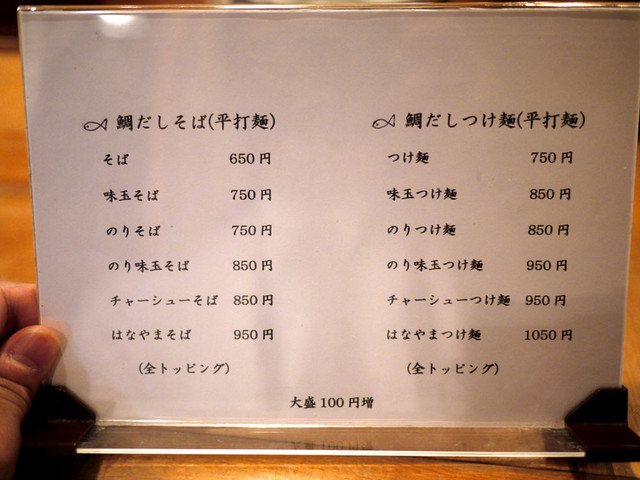 鯛だしそば(平打麺)
そば 650円
味玉そば 750円
のりそば 750円
のり味玉そば 850円
チャーシューそば 850円
はなやまそば 950円
(全トッピング)
鯛だしつけ麺(平打麺)
つけ麺 750円
味玉つけ麺 850円
のりつけ麺 850円
のり味玉つけ麺 950円
チャーシューつけ麺 950円
はなやまつけ麺 1050円
(全トッピング)
大盛100円増